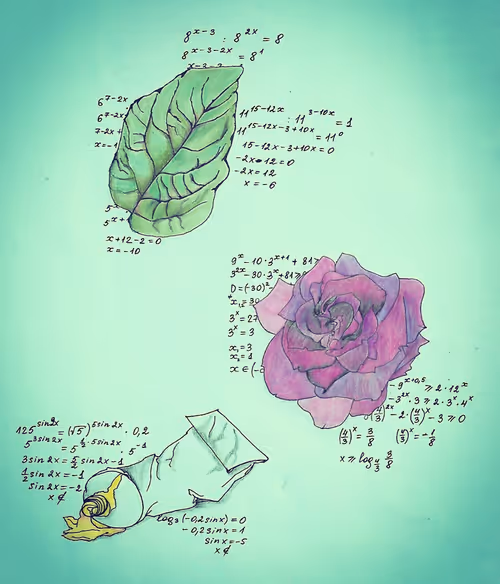 8^(x-3) : 8^(2x) = 8
8^(x-3-2x) = 8^1
6^(7-2x)
6^(7-2x)
7-2x+
x=-1
11^(15-12x) : 11^(3-10x) = 1
11^(15-12x-3+10x) = 11^0
15-12x-3+10x=0
-2x+12=0
-2x=12
x=-6
5^x
5^(x+
x+12-2=0
x=-10
9^x-10·3^(x+1)+81≥
3^(2x)-30·3^x+81≥0
D=(-30)^2
x_1=30
3^x=27
3^x=3
x_1=3
x_2=1
x∈(-
-9^(x+0,5) ≥ 2·12^x
-3^(2x)·3 ≥ 2·3^x·4^x
(4/3)^(2x)-2·(4/3)^x-3≥0
(4/3)^x=3/8 (4/3)^x=-1/8
x≥log_(4/3) 3/8
125^(sin2x)=(√5)^(5sin2x)·0,2
5^(3sin2x)=5^(1/2·5sin2x)·5^(-1)
3sin2x=5/2sin2x-1
1/2sin2x=-1
sin2x=-2
x∉
log_3(-0,2sinx)=0
-0,2sinx=1
sinx=-5
x∉